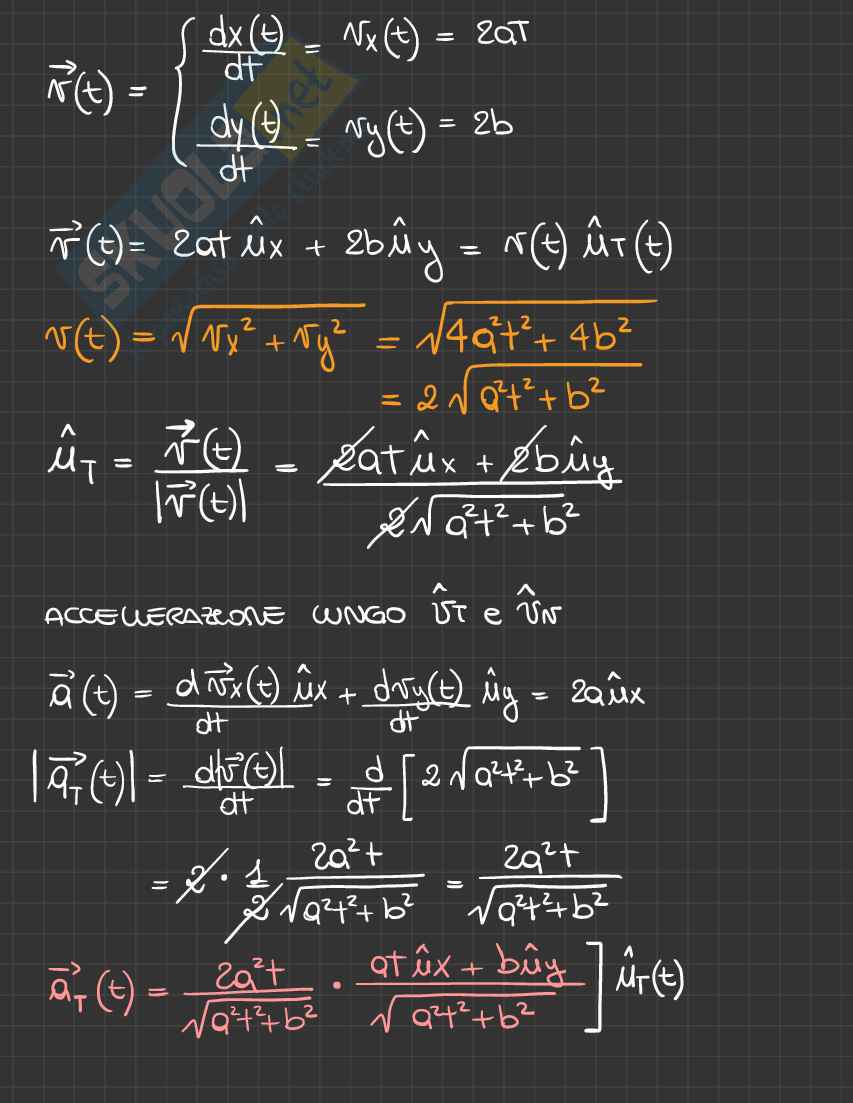 v⃗(t) = { dx(t)/dt = vx(t) = 2at
dy(t)/dt = vy(t) = 2b
v⃗(t) = 2at ûx + 2b ûy = v(t) ûT(t)
v(t) = √(vx² + vy²) = √(4a²t² + 4b²)
= 2√(a²t² + b²)
ûT = v⃗(t)/|v⃗(t)| = (2at ûx + 2b ûy)/(2√(a²t² + b²))
ACCELLERAZIONE LUNGO ÛT e ÛN
a⃗(t) = dv⃗x(t)/dt ûx + dvy(t)/dt ûy = 2a ûx
|a⃗T(t)| = d|v⃗(t)|/dt = d/dt [2√(a²t² + b²)]
= 2 · 1/2 2a²t/√(a²t² + b²) = 2a²t/√(a²t² + b²)
a⃗T(t) = 2a²t/√(a²t² + b²) · (at ûx + b ûy)/√(a²t² + b²) ] ûT(t)
SKUOLA.net